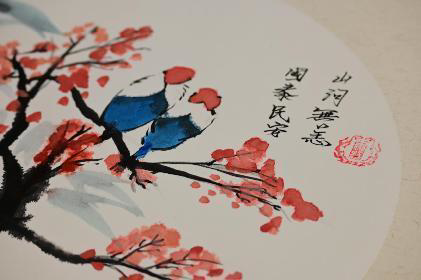 山河無恙
国泰民安